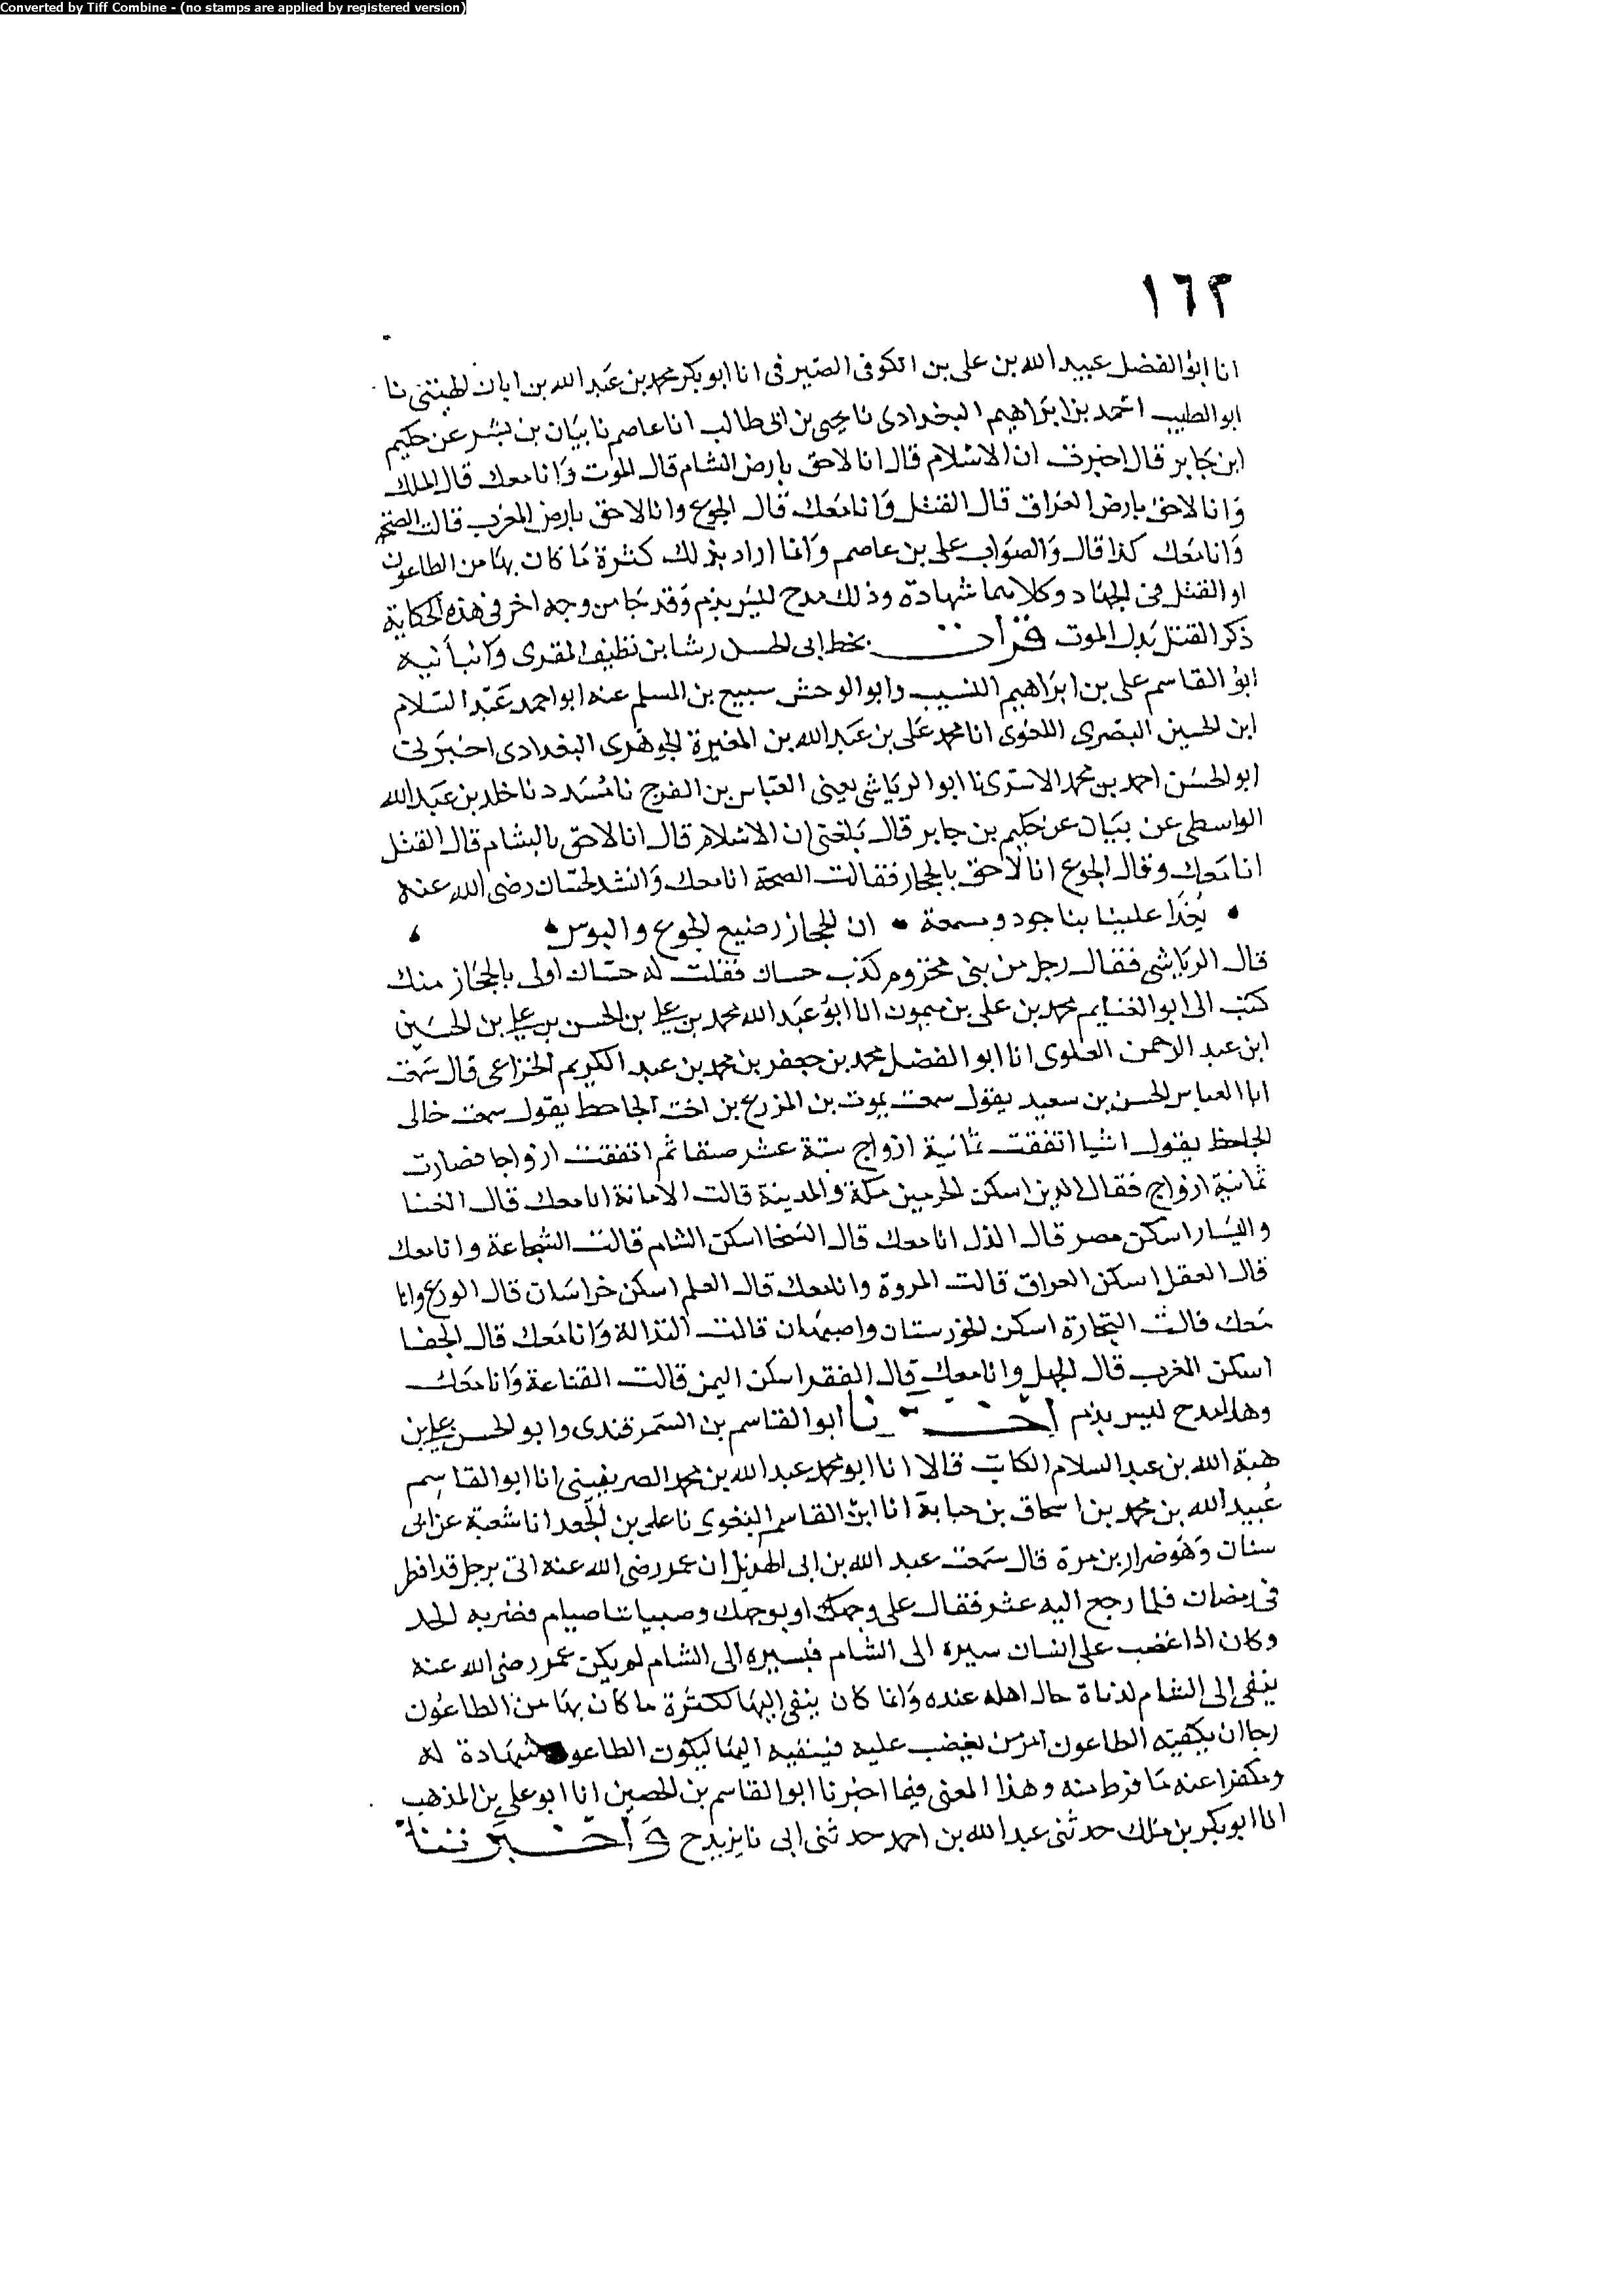 Converted by Tiff Combine - (no stamps are applied by registered version)
١٦٣
انا ابو الفضل عبيد الله بن علي بن الكوفي الصيرفي انا ابو بكر محمد بن عبد الله بن ابان الهيتي نا
ابو الطيب احمد بن ابراهيم البغدادي نا يحيى بن ابي طالب انا عاصم نا بيان بن بشر عن حكيم
ابن جابر قال اخبرت ان الاسلام قال انا لاحق بارض الشام قال الموت وانا معك قال الملك
وانا لاحق بارض العراق قال القتل وانا معك قال الجوع وانا لاحق بارض المغرب قالت الصحة
وانا معك كذا قال والصواب علي بن عاصم وانما اراد بذلك كثرة ما كان بها من الطاعون
او القتل في الجهاد وكلاهما شهادة وذلك مدح ليس بذم وقد جا من وجه اخر في هذه الحكاية
ذكر القتل بدل الموت قرات بخط ابي الحسن رشا بن نظيف المقرى وانبانيه
ابو القاسم علي بن ابراهيم النسيب وابو الوحش سبيع بن المسلم عنه ابو احمد عبد السلام
ابن الحسين البصري اللغوى انا محمد علي بن عبد الله بن المغيرة الجوهري البغدادي اخبرني
ابو الحسن احمد بن محمد الاسدي نا ابو الرياشي يعني العباس بن الفرج نا مسدد نا خلد بن عبد الله
الواسطي عن بيان عن حكيم بن جابر قال بلغني ان الاسلام قال انا لاحق بالشام قال القتل
انا معك وقال الجوع انا لاحق بالحجاز فقالت الصحة انا معك وانشد لحسان رضي الله عنه
علينا بنا جود ومسمعة ان الحجاز رضيع الجوع والبوس
قال الرياشي فقال رجل من بني مخزوم كذب حسان فقلت له حسان اولى بالحجاز منك
كتب الى ابو الغنايم محمد بن علي بن ميمون انا ابو عبد الله محمد بن علي بن الحسن بن علي بن الحسين
ابن عبد الرحمن العلوى انا ابو الفضل محمد بن جعفر بن محمد بن عبد الكريم الخزاعي قال سمعت
ابا العباس الحسن بن سعيد يقول سمعت يموت بن المزرع بن اخت الجاحظ يقول سمعت خالي
الجاحظ يقول اشيا اتفقت ثمانية ازواج ستة عشر صنفا ثم اتفقت ازواجا فصارت
ثمانية ازواج فقال الدين اسكن الحرمين مكة والمدينة قالت الامانة انا معك قال الغنا
واليسار اسكن مصر قال الذل انا معك قال السخا اسكن الشام قالت الشجاعة وانا معك
قال العقل اسكن العراق قالت المروة وانا معك قال العلم اسكن خراسان قال الورع وانا
معك قالت التجارة اسكن الخوزستان واصبهان قالت النذالة وانا معك قال الجفا
اسكن المغرب قال الجهل وانا معك قال الفقر اسكن اليمن قالت القناعة وانا معك
وهذا المدح ليس بذم اخبرنا ابو القاسم بن السمرقندى وابو الحسن علي بن
هبة الله بن عبد السلام الكاتب قالا انا ابو محمد عبد الله بن محمد الصريفيني انا ابو القاسم
عبيد الله بن محمد بن اسحاق بن حبابة انا ابو القاسم البغوى نا علي بن الجعد انا شعبة عن ابي
سنان وهو ضرار بن مرة قال سمعت عبد الله بن ابي الهذيل ان عمر رضي الله عنه اتى برجل قد افطر
في رمضان فلما رجع اليه عثر فقال على وجهك او بوجهك وصبياننا صيام فضربه الحد
وكان اذا غضب على انسان سيره الى الشام فسيره الى الشام لم يكن عمر رضي الله عنه
ينفي الى الشام لدناة حال اهله عنده وانما كان ينفي اليها لكثرة ما كان بها من الطاعون
رجا ان يكفيه الطاعون امر من يغضب عليه فينفيه اليها ليكون الطاعون شهادة له
ومكفرا عنه ما فرط منه وهذا المعنى فيما اخبرنا ابو القاسم بن الحصين انا ابو علي بن المذهب
انا ابو بكر بن ملك حدثني عبد الله بن احمد حدثني ابي نا يزيد ح واخبرتنا